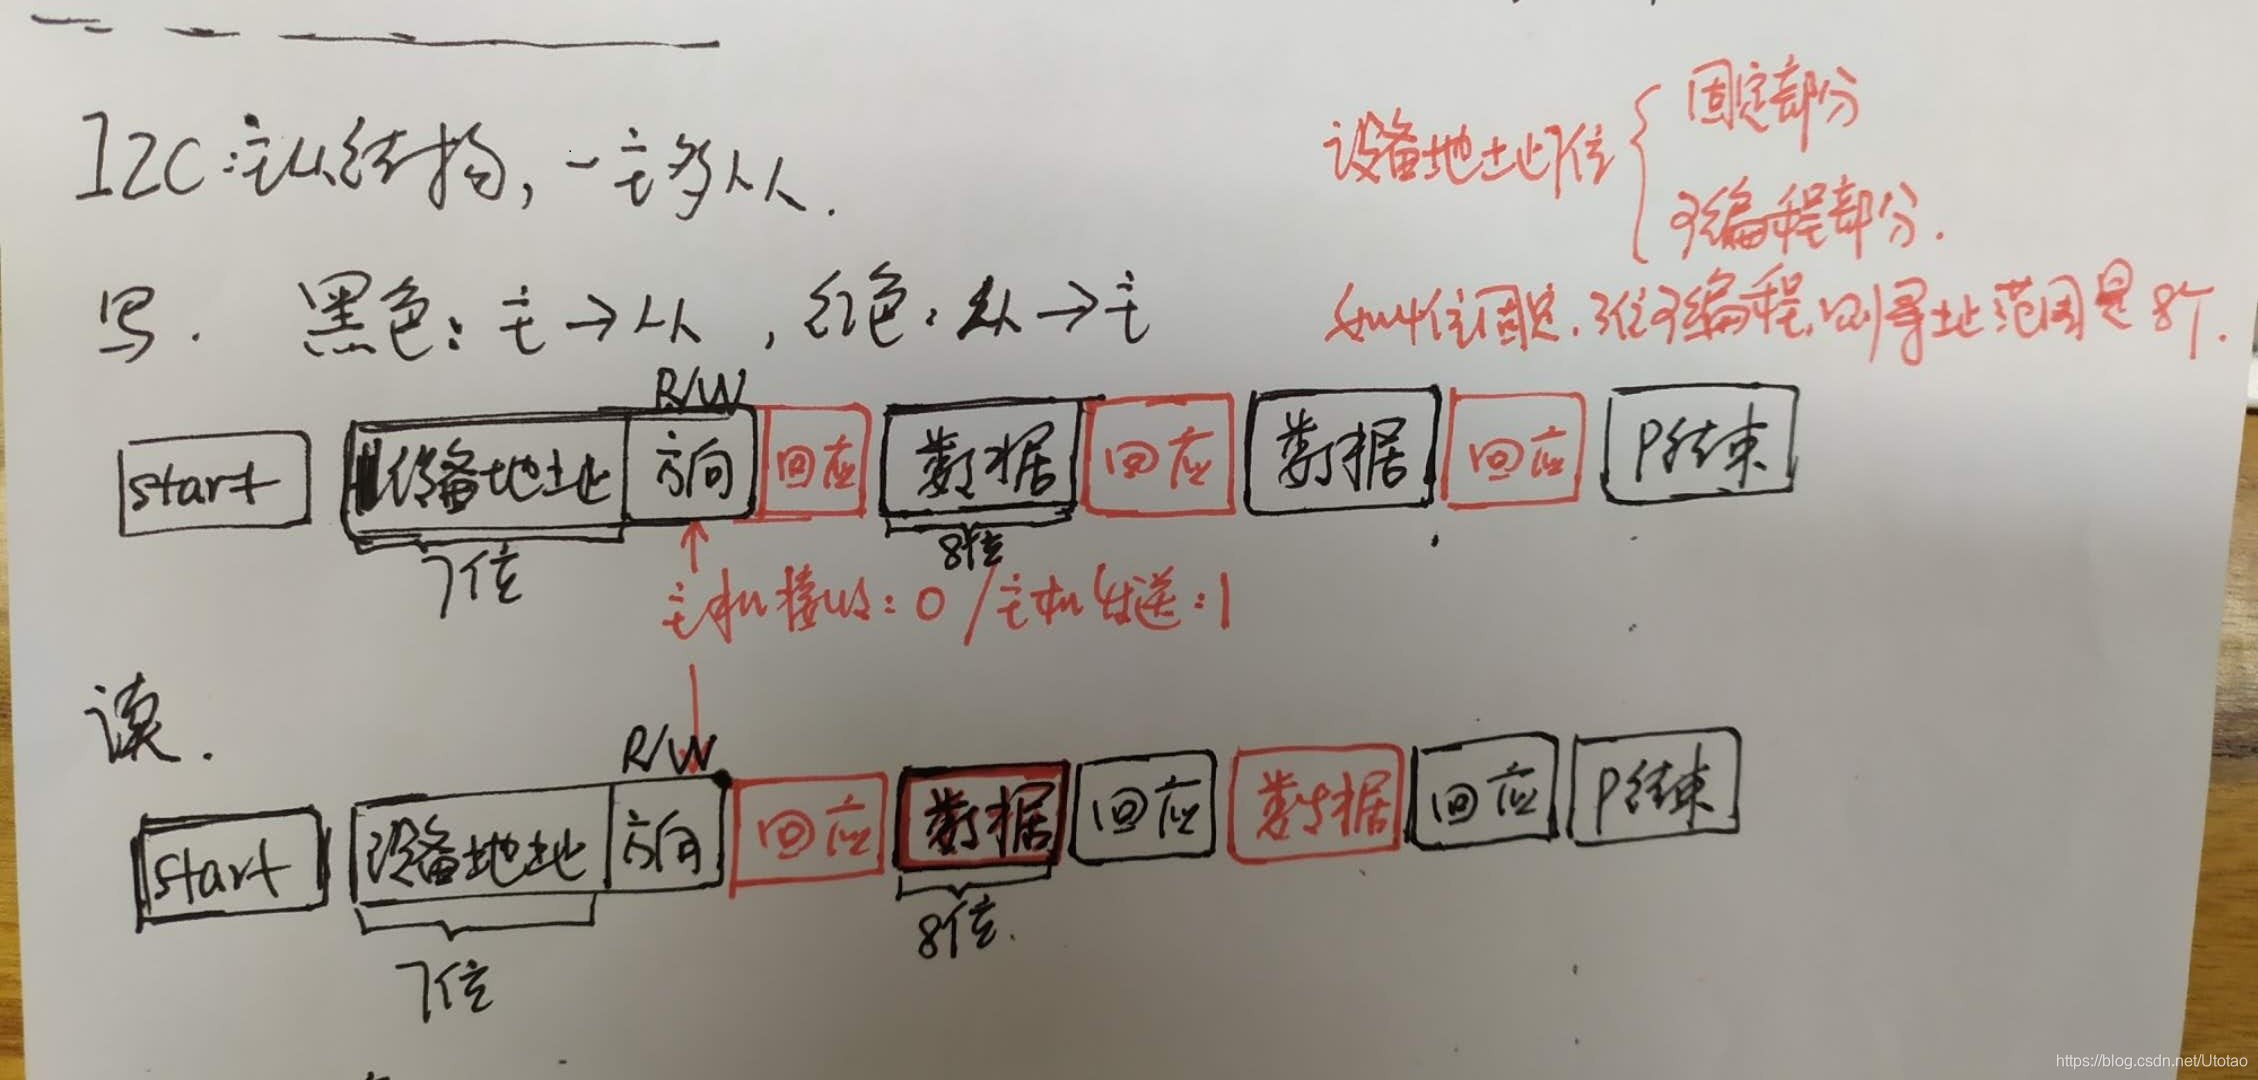 I2C:主从结构,一主多从.
设备地址7位
固定部分
可编程部分.
写. 黑色:主→从,红色:从→主
如4位固定,3位可编程,则寻址范围是8个.
R/W
start 设备地址 方向 回应 数据 回应 数据 回应 P结束
7位 8位
主机接收:0/主机发送:1
读.
R/W
start 设备地址 方向 回应 数据 回应 数据 回应 P结束
7位 8位.
https://blog.csdn.net/Utotao